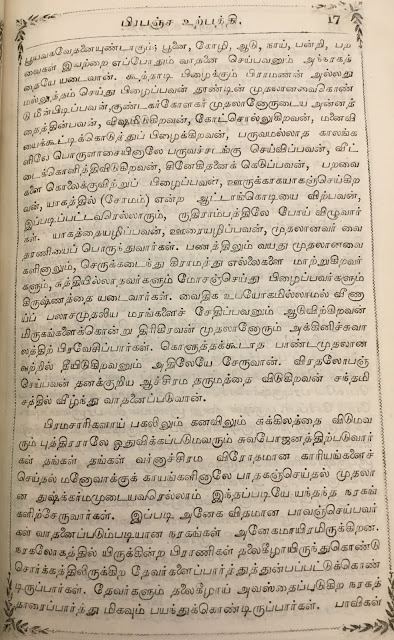 பிரபஞ்ச உற்பத்தி.
17
பூயவகவேதனையுண்டாகும்; பூனை, கோழி, ஆடு, நாய், பன்றி, பற
வைகள் இவற்றை எப்போதும் வாதனை செய்பவனும் அந்நரகத்
தையே யடைவான். கூத்தாடி பிழைக்கும் பிராமணன் அல்லது
மல்லுத்தம் செய்து பிழைப்பவன் தூண்டின் முதலானவைகொண்
டு மீன்பிடிப்பவன், குண்டகர்கோளகர் முதலானோருடைய அன்னத்
தைத்தின்பவன், விஷமிடுகிறவன், கோட்சொல்லுகிறவன், மனைவி
யைக்கூட்டிக்கொடுத்துப் பிழைக்கிறவன், பருவமல்லாத காலங்க
ளிலே பொருளாசையினாலே பருவச்சடங்கு செய்விப்பவன், வீட்
டைக்கொளுத்திவிடுகிறவன், சினேகிதனைக் கெடுப்பவன், பறவை
களை கொலைக்குவிற்றுப் பிழைப்பவன், ஊருக்காகயாகஞ்செய்கிற
வன், யாகத்தில் (சோமம்) என்ற ஆட்டாங்கொடியை விற்பவன்,
இப்படிப்பட்டவரெல்லாரும், ருதிராம்பத்திலே போய் விழுவார்
கள். யாகத்தையழிப்பவன், ஊரையழிப்பவன், முதலானவர் வை
தரணியைப் பொருந்துவார்கள். பணத்தினும் வயது முதலானவை
களினாலும், செருக்கடைந்து கிராமத்து எல்லைகளை மாற்றுகிறவர்
களும், சுத்தியில்லாதவர்களும் மோசஞ்செய்து பிழைப்பவர்களும்
கிருஷ்ணத்தை யடைவார்கள். வைதிக உபயோகமில்லாமல் வீணா
ய்ப் பலாசமுதலிய மரங்களைச் சேதிப்பவனும் ஆடுவிற்கிறவன்
மிருகங்களைக்கொன்று திரிகிரவன் முதலானோரும் அக்கினிச்சுவா
லத்திற் பிரவேசிப்பார்கள். கொளுத்தக்கூடாத பாண்டமுதலான
வற்றில் தீயிடுகிறவனும் அதிலேயே சேருவான். விரதலோபஞ்
செய்பவன் தனக்குறிய ஆச்சிரம தருமத்தை விடுகிறவன் சந்தமி
சத்தில் வீழ்ந்து வாதனைப்படுவான்.
பிரமசாரிகளாய் பகலிலும் கனவிலும் சுக்கிலத்தை விடுமவ
ரும் புத்திரராலே ஓதுவிக்கப்படுமவரும் சுவபோஜனத்திற்படுவார்
கள் தங்கள் தங்கள் வர்னாச்சிரம விரோதமான காரியங்களைச்
செய்தல் மனோவாக்குக் காயங்களினாலே பாதகஞ்செய்தல் முதலா
ன துஷ்க்கர்மமுடையவரெல்லாம் இந்தப்படியே யந்தந்த நரகங்
களிற்சேருவார்கள். இப்படி அனேக விதமான பாவஞ்செய்பவர்
கள் வாதனைப்படும்படியான நரகங்கள் அனேகமாயிரமிருக்கின்றன.
நரகலோகத்தில் யிருக்கின்ற பிராணிகள் தலைகீழாயிருந்துகொண்டு
சொர்க்கத்திலிருக்கிற தேவர்களைப்பார்த்துத்துன்பப்பட்டுக்கொண்
டிருப்பார்கள். தேவர்களும் தலைகீழாய் அவஸ்தைப்படுகிற நரகத்
தாரைப்பார்த்து மிகவும் பயந்துக்கொண்டிருப்பார்கள். பாவிகள்